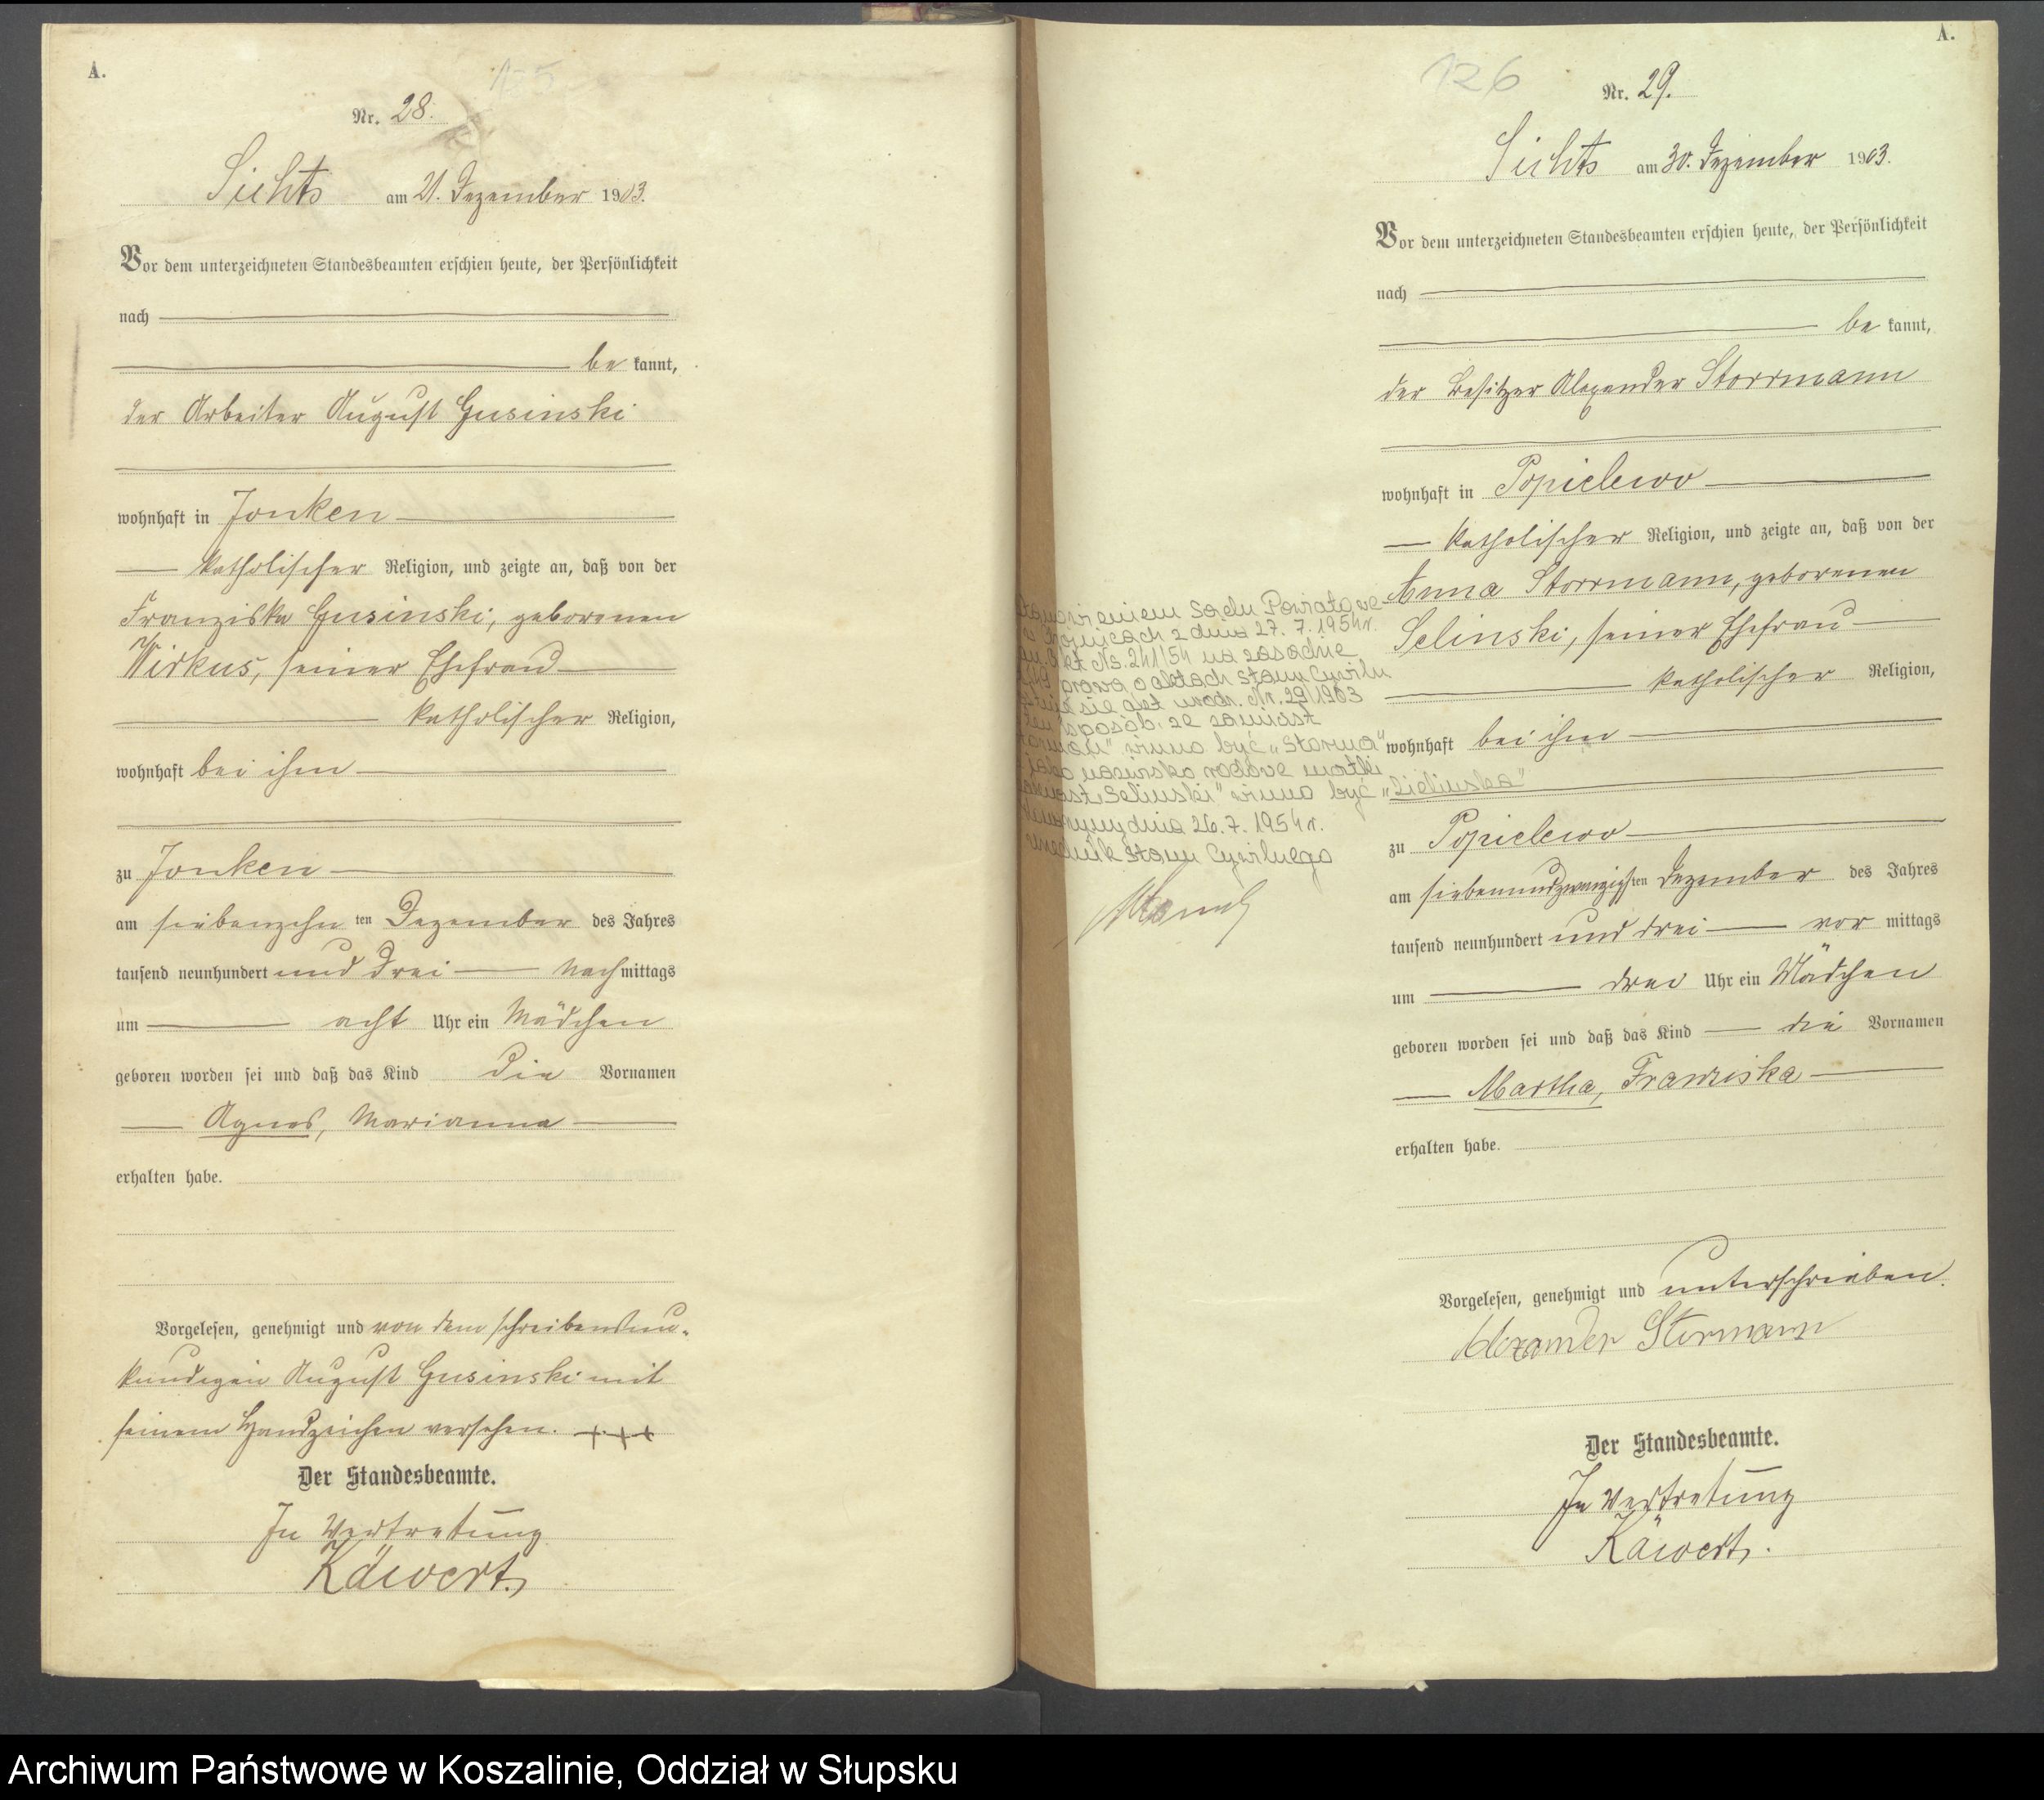 A.
125
Nr. 28.
Sichts am 21. Dezember 1903.
Vor dem unterzeichneten Standesbeamten erschien heute, der Persönlichkeit
nach
be kannt,
der Arbeiter August Gusinski
wohnhaft in Jonken
katholischer Religion, und zeigte an, daß von der
Franziska Gusinski, geborenen
Wirkus, seiner Ehefrau
katholischer Religion,
wohnhaft bei ihm
zu Jonken
am siebenzehn ten Dezember des Jahres
tausend neunhundert und drei nach mittags
um acht Uhr ein Mädchen
geboren worden sei und daß das Kind die Vornamen
Agnes, Marianna
erhalten habe.
Vorgelesen, genehmigt und von dem schreibensun-
kundigen August Gusinski mit
seinem Handzeichen versehen. +++
Der Standesbeamte.
In Vertretung
Käwert
A.
126
Nr. 29.
Sichts am 30. Dezember 1903.
Vor dem unterzeichneten Standesbeamten erschien heute, der Persönlichkeit
nach
be kannt,
der Besitzer Alexander Storrmann
wohnhaft in Popielewo
katholischer Religion, und zeigte an, daß von der
Anna Storrmann, geborenen
Selinski, seiner Ehefrau
katholischer Religion,
wohnhaft bei ihm
zu Popielewo
am siebenundzwanzigsten Dezember des Jahres
tausend neunhundert und drei vor mittags
um drei Uhr ein Mädchen
geboren worden sei und daß das Kind die Vornamen
Martha, Franziska
erhalten habe.
Vorgelesen, genehmigt und unterschrieben.
Alexander Stormann
Der Standesbeamte.
In Vertretung
Käwert.
Sądu Powiatowe
z dnia 27. 7. 1954 r.
Ns. 241/54 na zasadzie
prawa o aktach stanu cywilu
się akt urodz. Nr. 29/1903
sposób, że zamiast
winno być „Storma"
jako nazwisko rodowe matki
„Selinski" winno być „Zielinska"
dnia 26. 7. 1954 r.
Stanu Cywilnego
Archiwum Państwowe w Koszalinie, Oddział w Słupsku